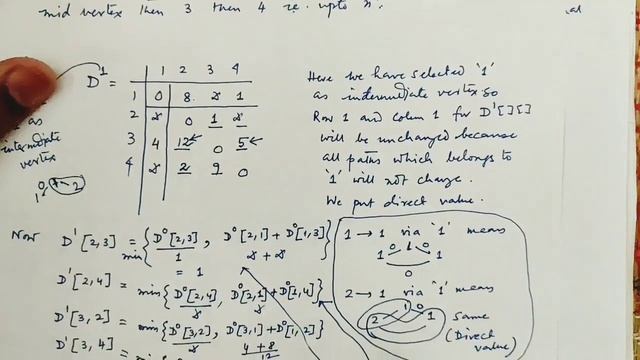 mid vertex then 3 then 4 ie. upto n.
D¹ =
1 2 3 4
1 0 8 ∞ 1
2 ∞ 0 1 ∞
3 4 12 0 5
4 ∞ 2 9 0
as
intermediate
vertex
Here we have selected '1'
as intermediate vertex so
Row 1 and colum 1 for D'[][]
will be unchanged because
all paths which belongs to
'1' will not change.
We put direct value.
Now D'[2,3] = min{D⁰[2,3], D⁰[2,1]+D⁰[1,3]}
1 ∞ + ∞
= 1
D'[2,4] = min{D⁰[2,4], D⁰[2,1]+D⁰[1,4]}
D'[3,2] = min{D⁰[3,2], D⁰[3,1]+D⁰[1,2]}
∞ 4 + 8
12
D'[3,4] =
1 → 1 via '1' means
0 1 0
1 1
0
2 → 1 via '1' means
1 0
2 1 same
(Direct
value)